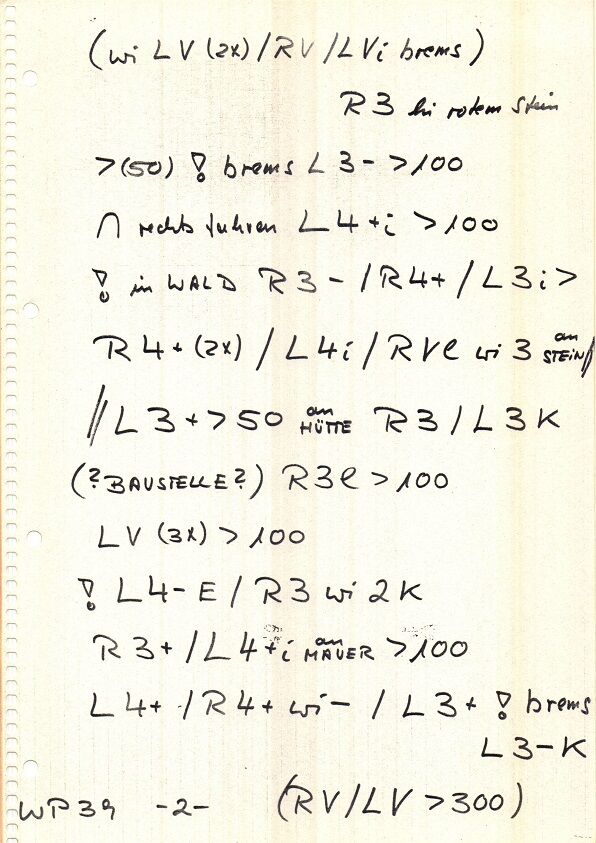 (wi LV (2x) / RV / LVi brems)
R3 bei rotem Stein
>(50) ! brems L3- >100
∩ rechts fahren L4+i >100
! in WALD R3- / R4+ / L3i >
R4+ (2x) / L4i / RVe wi 3 an STEIN /
// L3+ >50 an HÜTTE R3 / L3K
(?BAUSTELLE?) R3e >100
LV (3x) >100
! L4-E / R3 wi 2K
R3+ / L4+i an MAUER >100
L4+ / R4+ wi- / L3+ ! brems
L3-K
WP39 -2- (RV/LV >300)